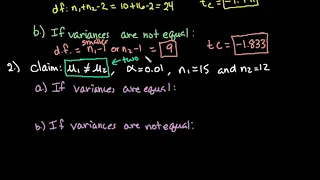 d.f: n₁+n₂-2 = 10+16-2=24 tc=
b) If variances are not equal:
smaller
d.f. = n₁-1 or n₂-1 = 9 tc = -1.833
2) Claim: μ₁ ≠ μ₂, α=0.01, n₁=15 and n₂=12
two
a) If variances are equal:
b) If variances are not equal: